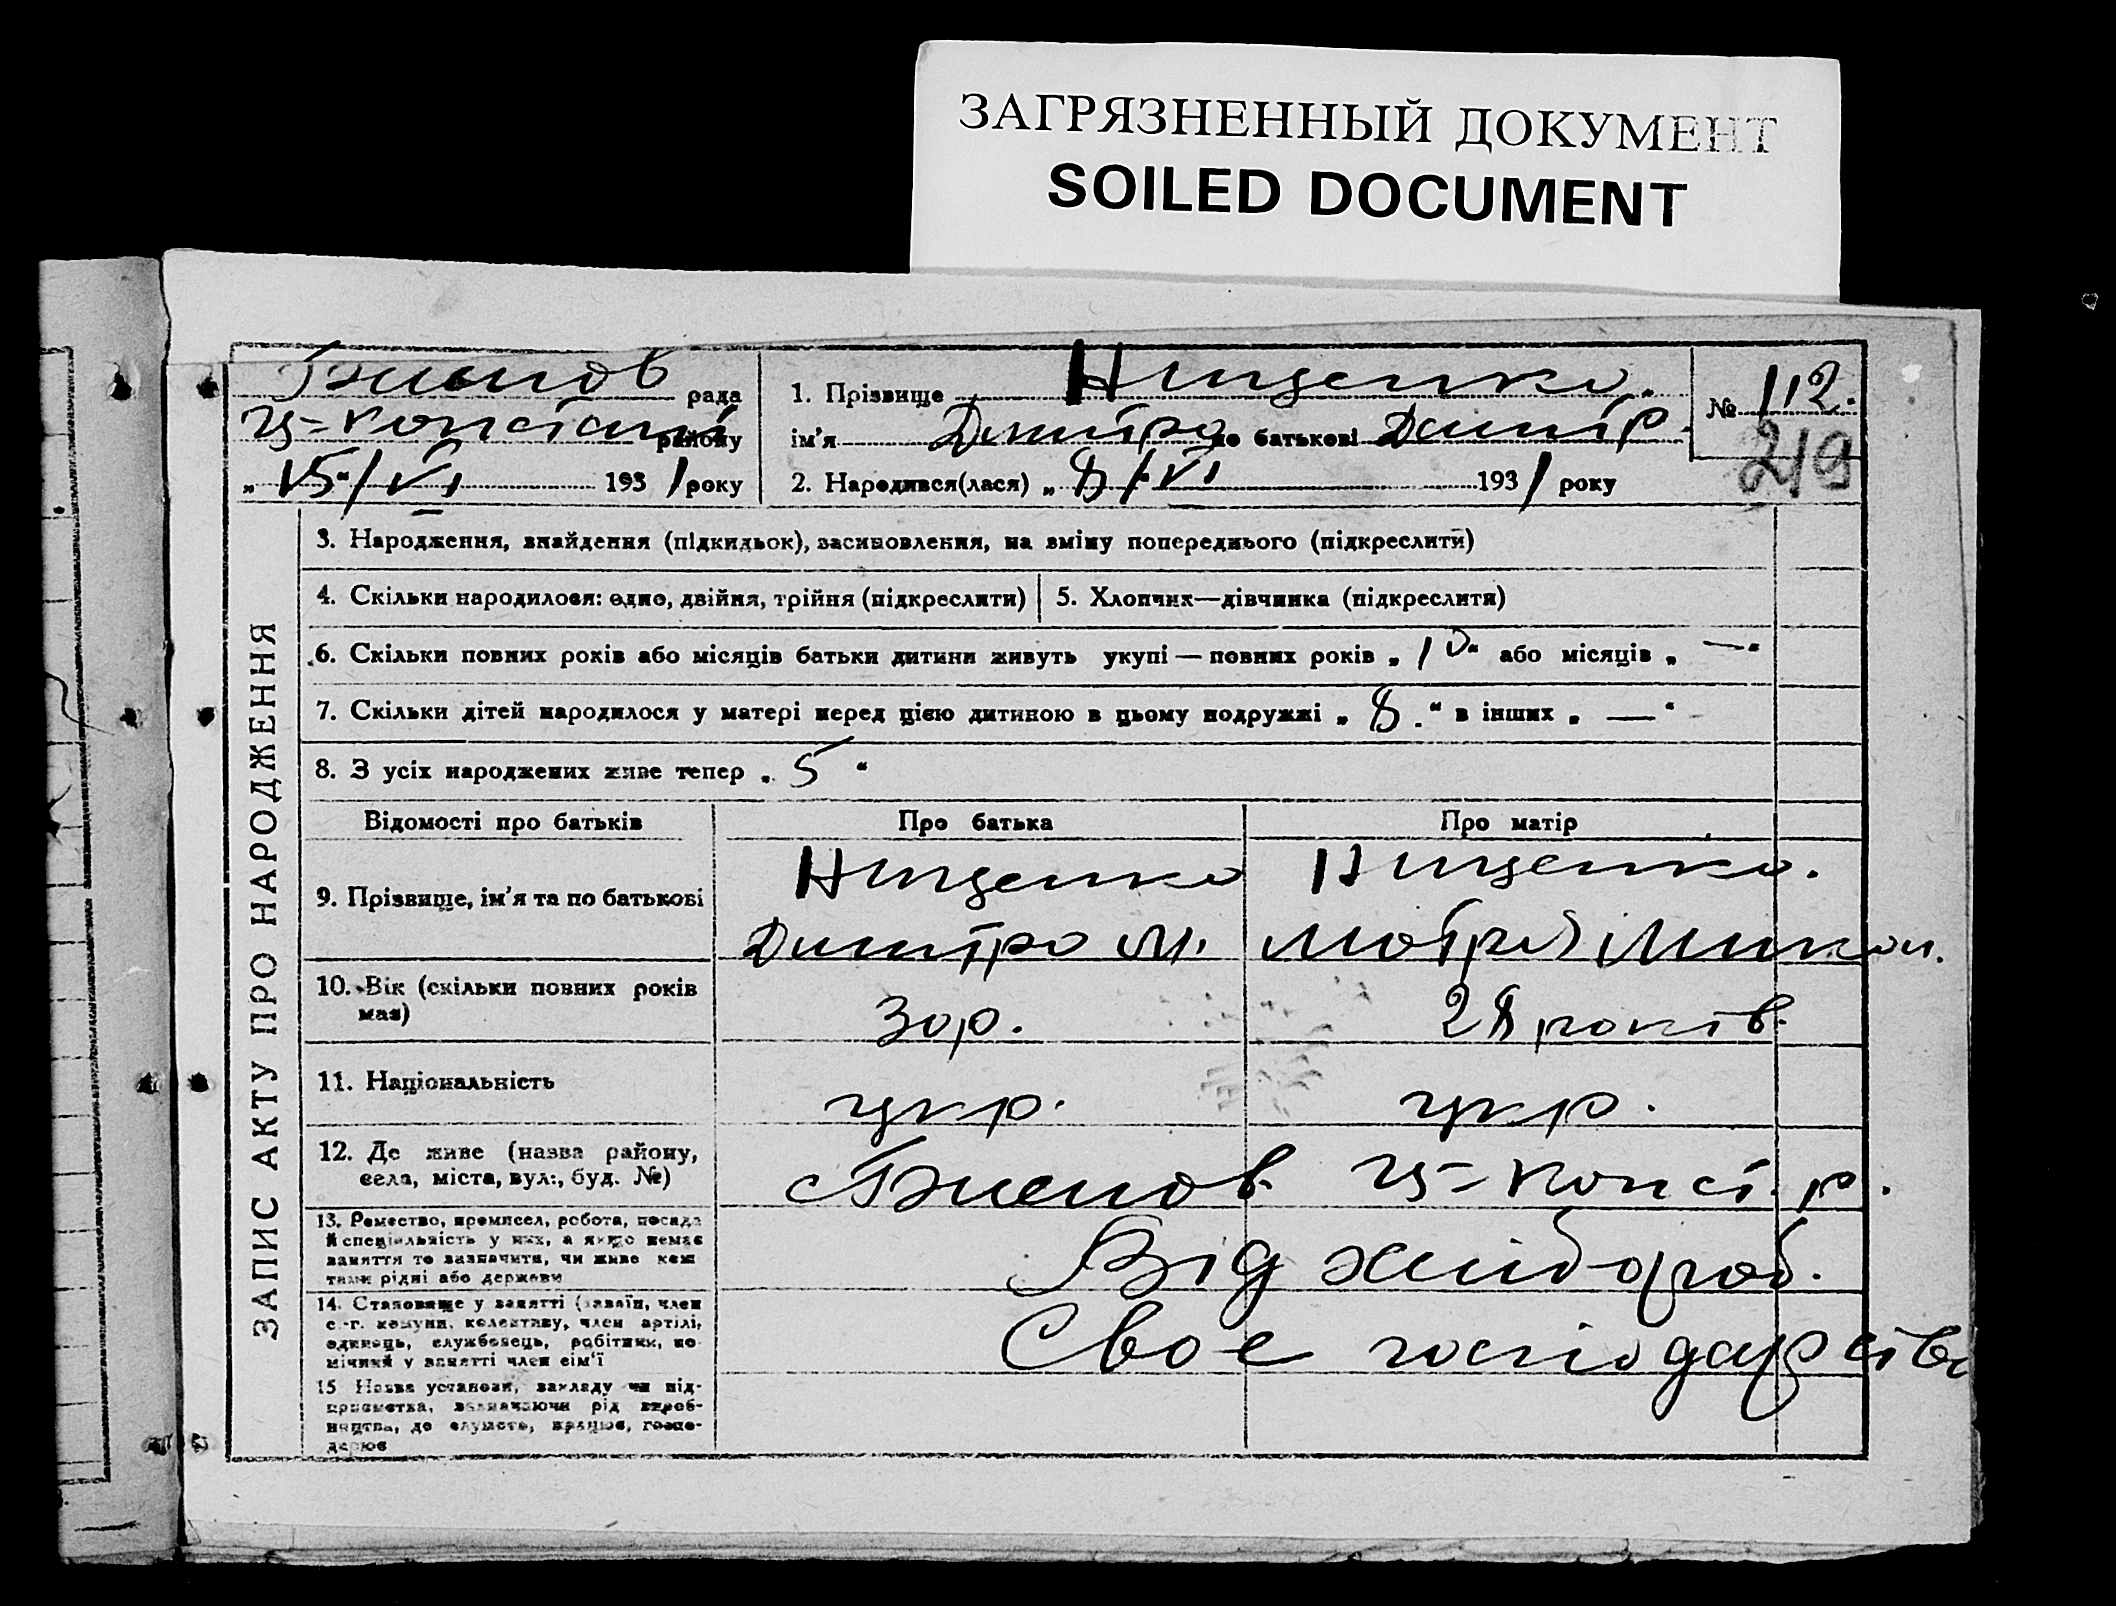 ЗАГРЯЗНЕННЫЙ ДОКУМЕНТ
SOILED DOCUMENT
рада
району
„15“/VI 1931 року
1. Прізвище Нищенко.
ім'я Дмитро по батькові Дмитр.
2. Народився(лася) „8“/VI 1931 року
№ 112.
219
ЗАПИС АКТУ ПРО НАРОДЖЕННЯ
3. Народження, знайдення (підкидьок), засиновлення, на зміну попереднього (підкреслити)
4. Скільки народилося: одно, двійня, трійня (підкреслити)
5. Хлопчик—дівчинка (підкреслити)
6. Скільки повних років або місяців батьки дитини живуть укупі — повних років „10“ або місяців „—“
7. Скільки дітей народилося у матері перед цією дитиною в цьому подружжі „8.“ в інших „—“
8. З усіх народжених живе тепер „5“
Відомості про батьків
Про батька
Про матір
9. Прізвище, ім'я та по батькові
Нищенко
Дмитро М.
Нищенко.
Мотря Микол.
10. Вік (скільки повних років
має)
30р.
28 років.
11. Національність
укр.
укр.
12. Де живе (назва району,
села, міста, вул., буд. №)
Конст. р.
13. Ремество, промисел, робота, посада
й спеціяльність у них, а якщо немає
заняття то зазначити, чи живе кош
тами рідні або держави
Від хлібороб.
14. Становище у занятті (хазяїн, член
с.-г. комуни, колективу, член артілі,
одинець, службовець, робітник, по-
мічний у занятті член сім'ї
Своє господарство
15 Назва установи, закладу чи під-
приємства, зазначаючи рід вироб-
ництва, де служить, працює, госпо-
дарює